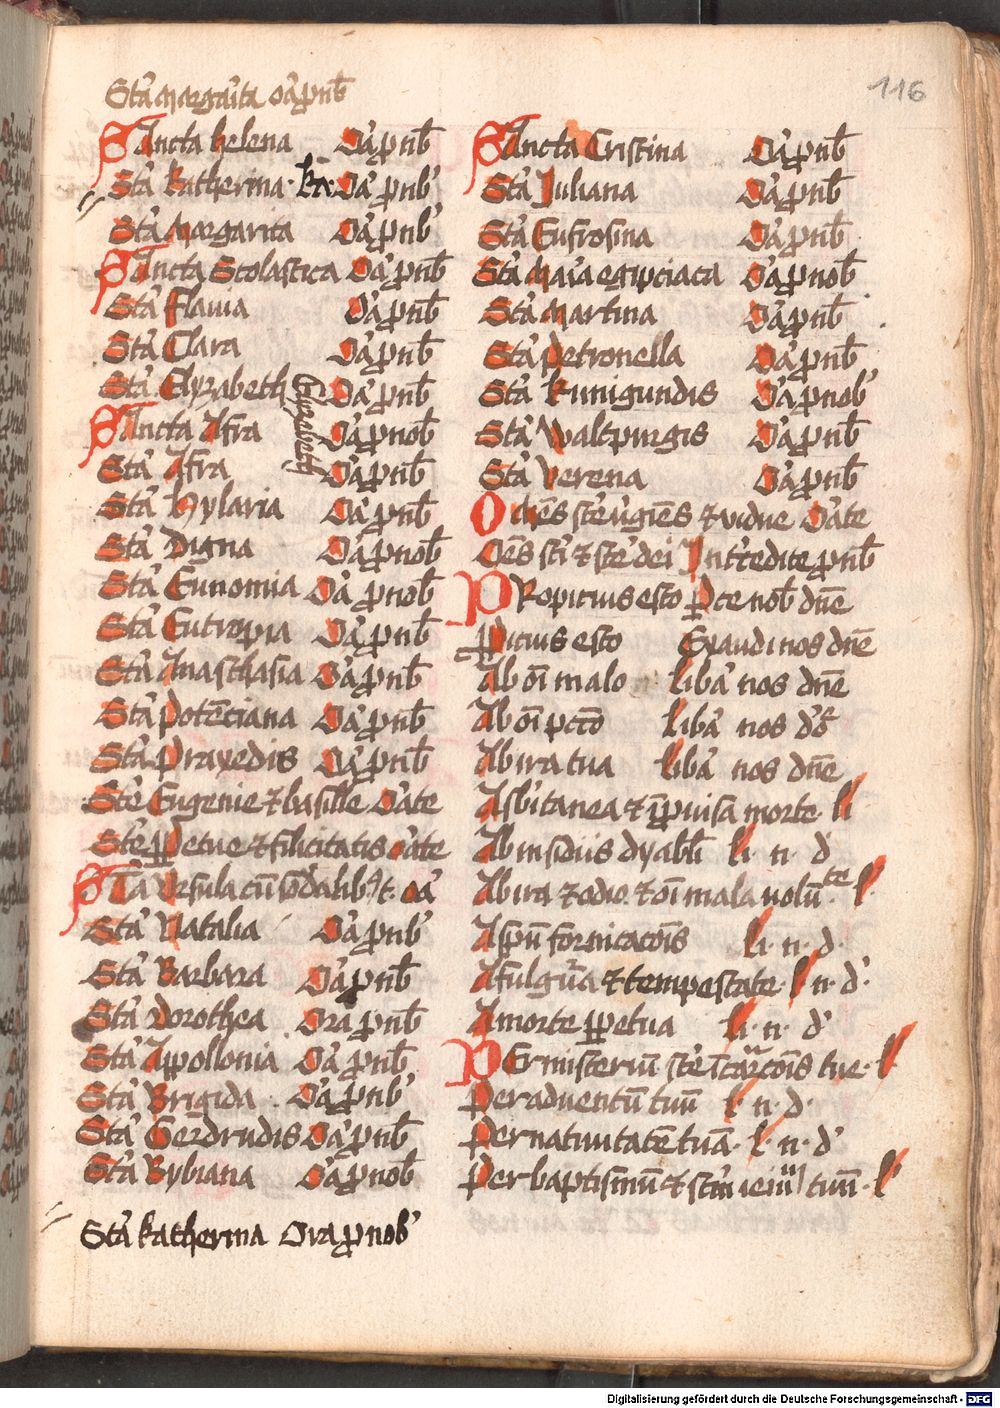 116
Sta' Margarita Oa' p nb
SAncta helena Oa' p nb
Sta' katherina · ka · Oa' p nb
Sta' Margarita Oa' p nb
SAncta Scolastica Oa' p nb
Sta' Flavia Oa' p nb
Sta' Clara Oa' p nb
Sta' Elyzabeth Oa' p nb
SAncta Afra Oa' p nob
Sta' Afra Oa' p nb
Sta' Hylaria Oa' p nb
Sta' Digna Oa' p nob
Sta' Eunomia Oa' p nob
Sta' Eutropia Oa' p nb
Sta' Anasthasia Oa' p nb
Sta' potēciana Oa' p nb
Sta' praxedis Oa' p nb
Ste Eugenie & basille Oa'te
Ste ppetue & filicitatis oa'te
STa' Ursula cū sodalib9 t· oa'
Sta' Natalia Oa' p nb
Sta' Barbara Oa' p nb
Sta' Dorothea Ora p nb
Sta' Appollonia Oa' p nb
Sta' Brigida Oa' p nb
Sta' Gerdrudis Oa' p nb
Sta' Bybiana Oa' p nob
Sta' katherina Ora p nob
SAncta Cristina Oa' p nb
Sta' Juliana Oa' p nb
Sta' Eufrosina Oa' p nb
Sta' Maa' egipciaca Oa' p nob
Sta' Martina Oa' p nb
Sta' petronella Oa' p nb
Sta' kunigundis Oa' p nob
Sta' waltpurgis Oa' p nb
Sta' Verena Oa' p nb
Omēs ste ūgiēs & vidue Oa'te
Oēs sti & ste dei Int'cedite p nb
PRopicius esto pce nob dn̄e
ppicius esto Exaudi nos dn̄e
Ab oī malo liba' nos dn̄e
Ab oī pctō liba' nos d'
Ab ira tua liba' nos dn̄e
A sb'itanea & īpuisa morte · li
Ab insidiis dyabli li · n · d'
Ab ira & odio & oī mala volūte · l·
A spū fornicacōis li · n · d·
A fulgu'a & tempestate · l n · d'
A morte ppetua li · n · d'
PEr misteriū ste īcarcōis tue · l
Per adventū tuū l · n · d·
Per nativitatē tuā · l · n · d'
Per baptismū & scm ieiuı tuū · l